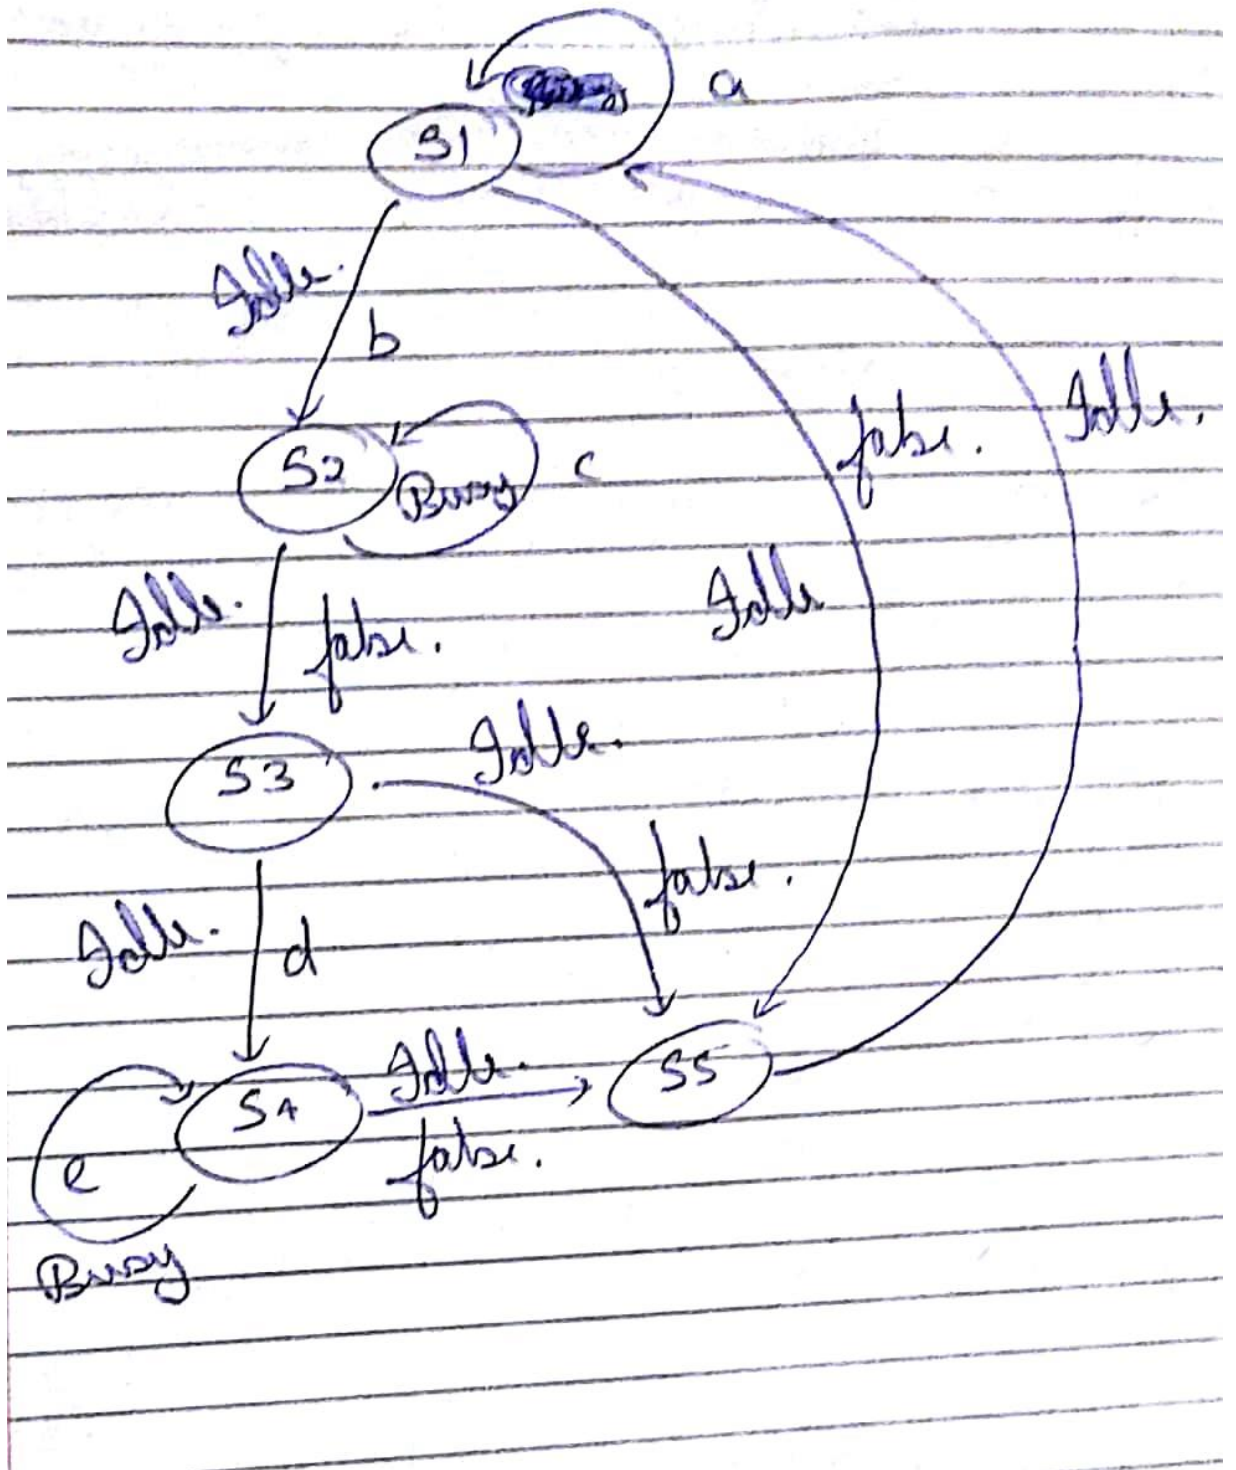 a
S1
Idle.
b
false.
Idle.
S2
Busy
c
Idle.
false.
Idle
S3
Idle.
false.
Idle.
d
S4
Idle.
false.
S5
e
Busy